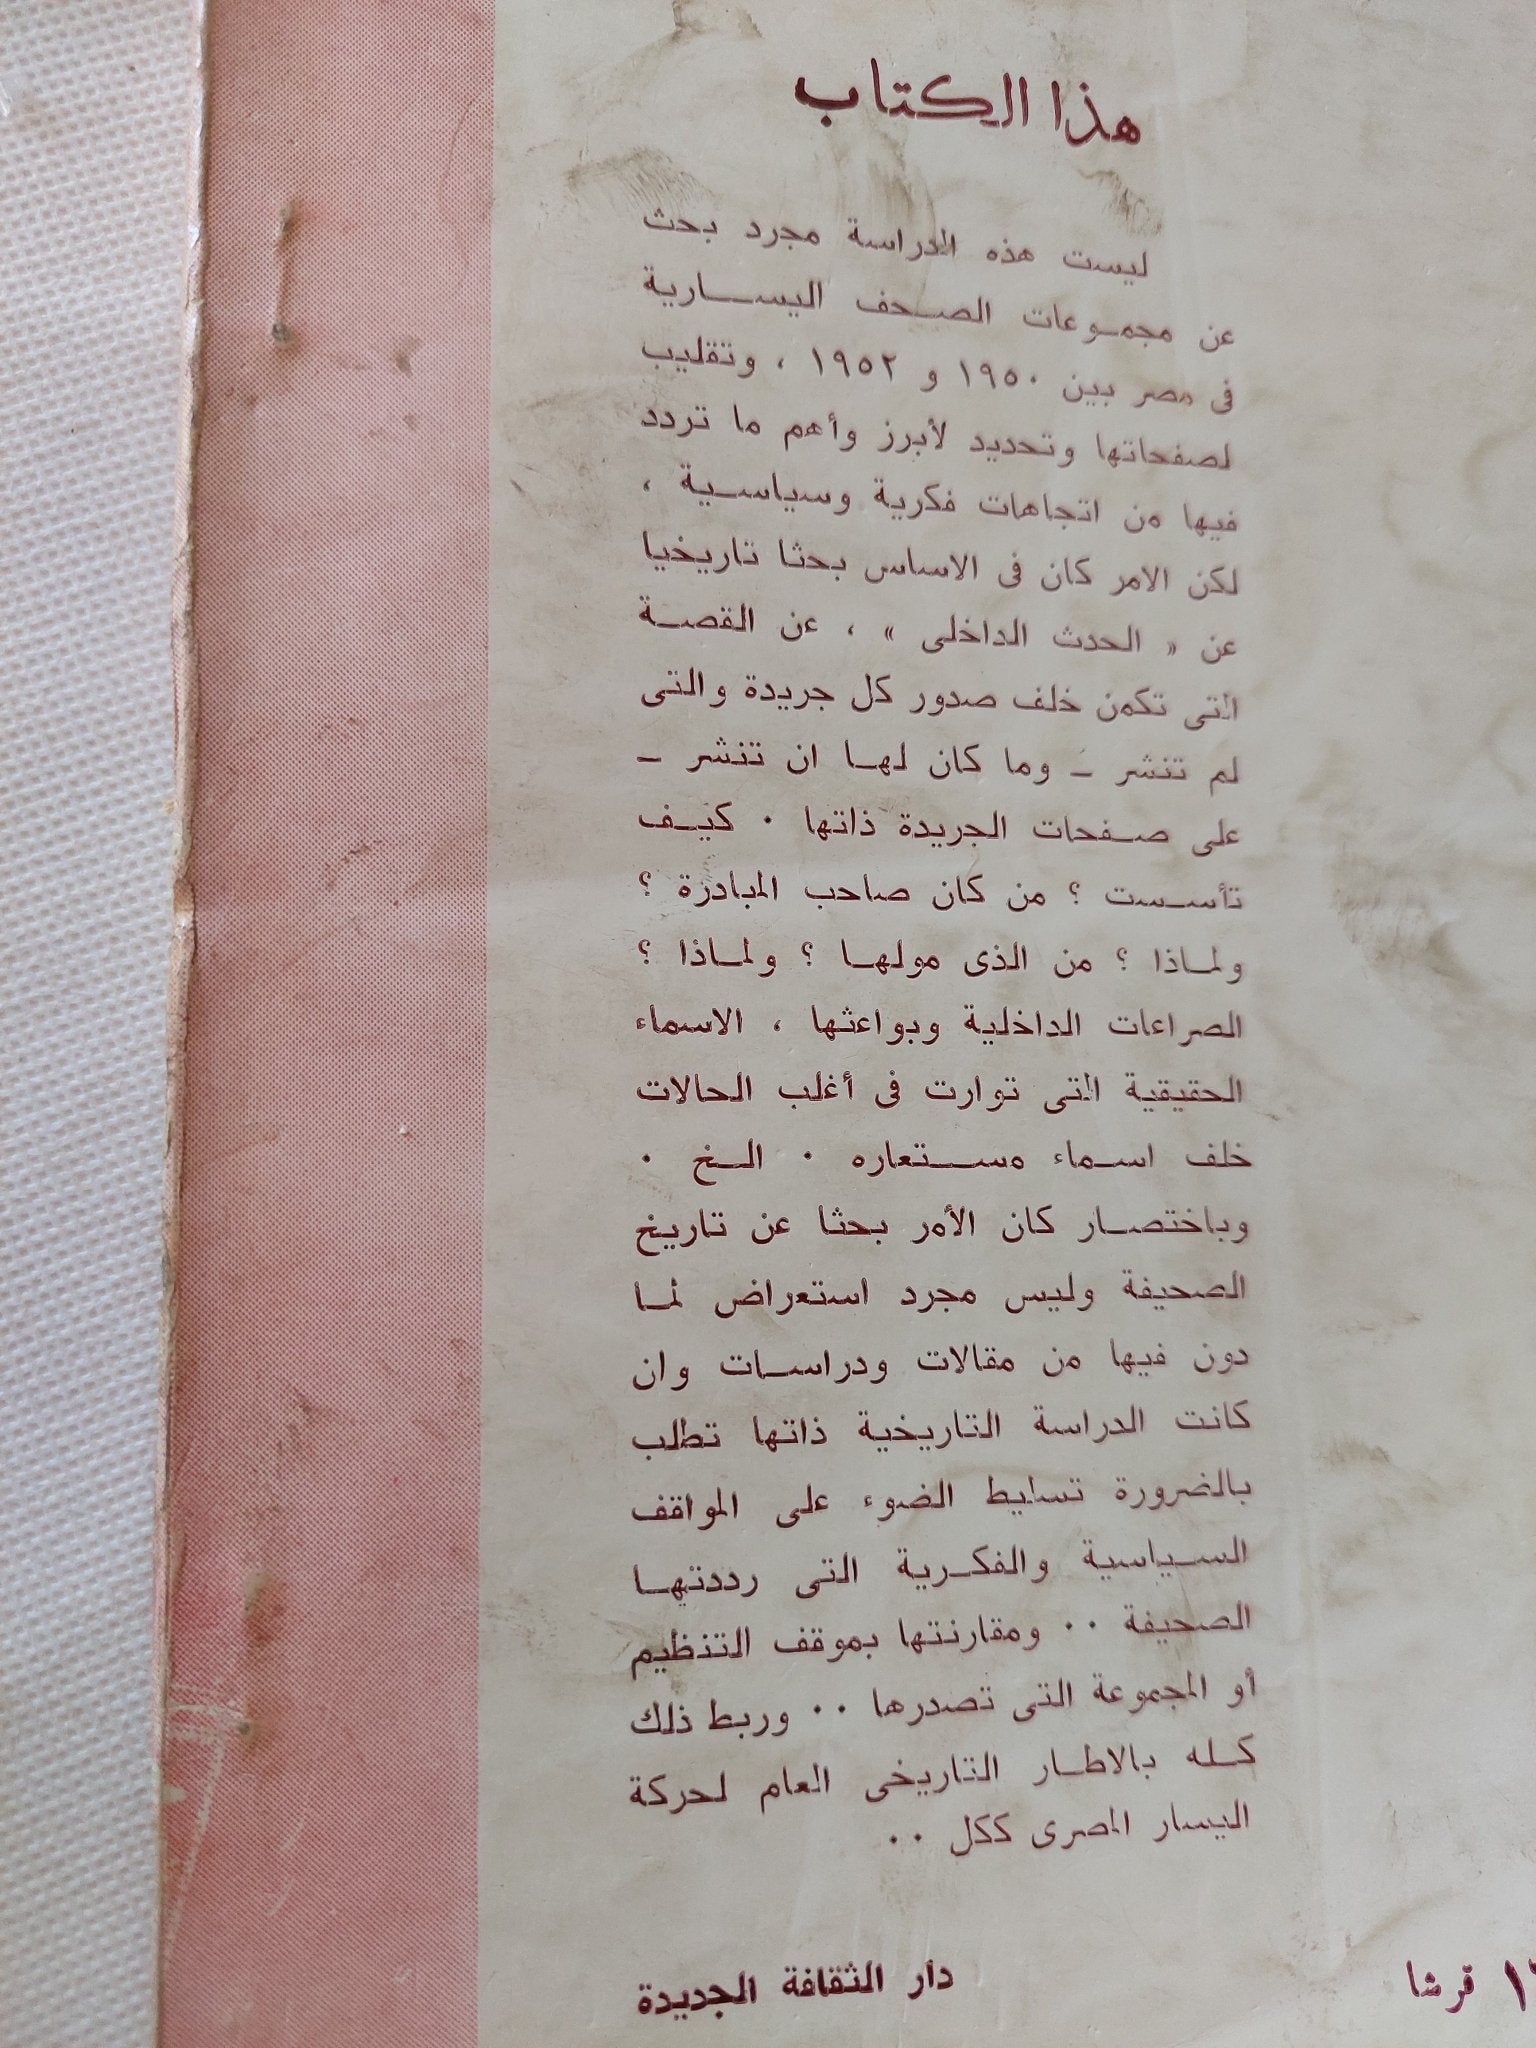 هذا الكتاب
ليست هذه الدراسة مجرد بحث
عن مجموعات الصحف اليسارية
فى مصر بين ١٩٥٠ و ١٩٥٢ ، وتقليب
لصفحاتها وتحديد لأبرز وأهم ما تردد
فيها من اتجاهات فكرية وسياسية ،
لكن الامر كان فى الاساس بحثا تاريخيا
عن « الحدث الداخلى » ، عن القصة
التى تكمن خلف صدور كل جريدة والتى
لم تنشر – وما كان لها ان تنشر –
على صفحات الجريدة ذاتها . كيف
تأسست ؟ من كان صاحب المبادرة ؟
ولماذا ؟ من الذى مولها ؟ ولماذا ؟
الصراعات الداخلية وبواعثها ، الاسماء
الحقيقية التى توارت فى أغلب الحالات
خلف اسماء مستعاره . الخ .
وباختصار كان الأمر بحثا عن تاريخ
الصحيفة وليس مجرد استعراض لما
دون فيها من مقالات ودراسات وان
كانت الدراسة التاريخية ذاتها تطلب
بالضرورة تسليط الضوء على المواقف
السياسية والفكرية التى رددتها
الصحيفة .. ومقارنتها بموقف التنظيم
أو المجموعة التى تصدرها .. وربط ذلك
كله بالاطار التاريخى العام لحركة
اليسار المصرى ككل ..
دار الثقافة الجديدة
قرشا